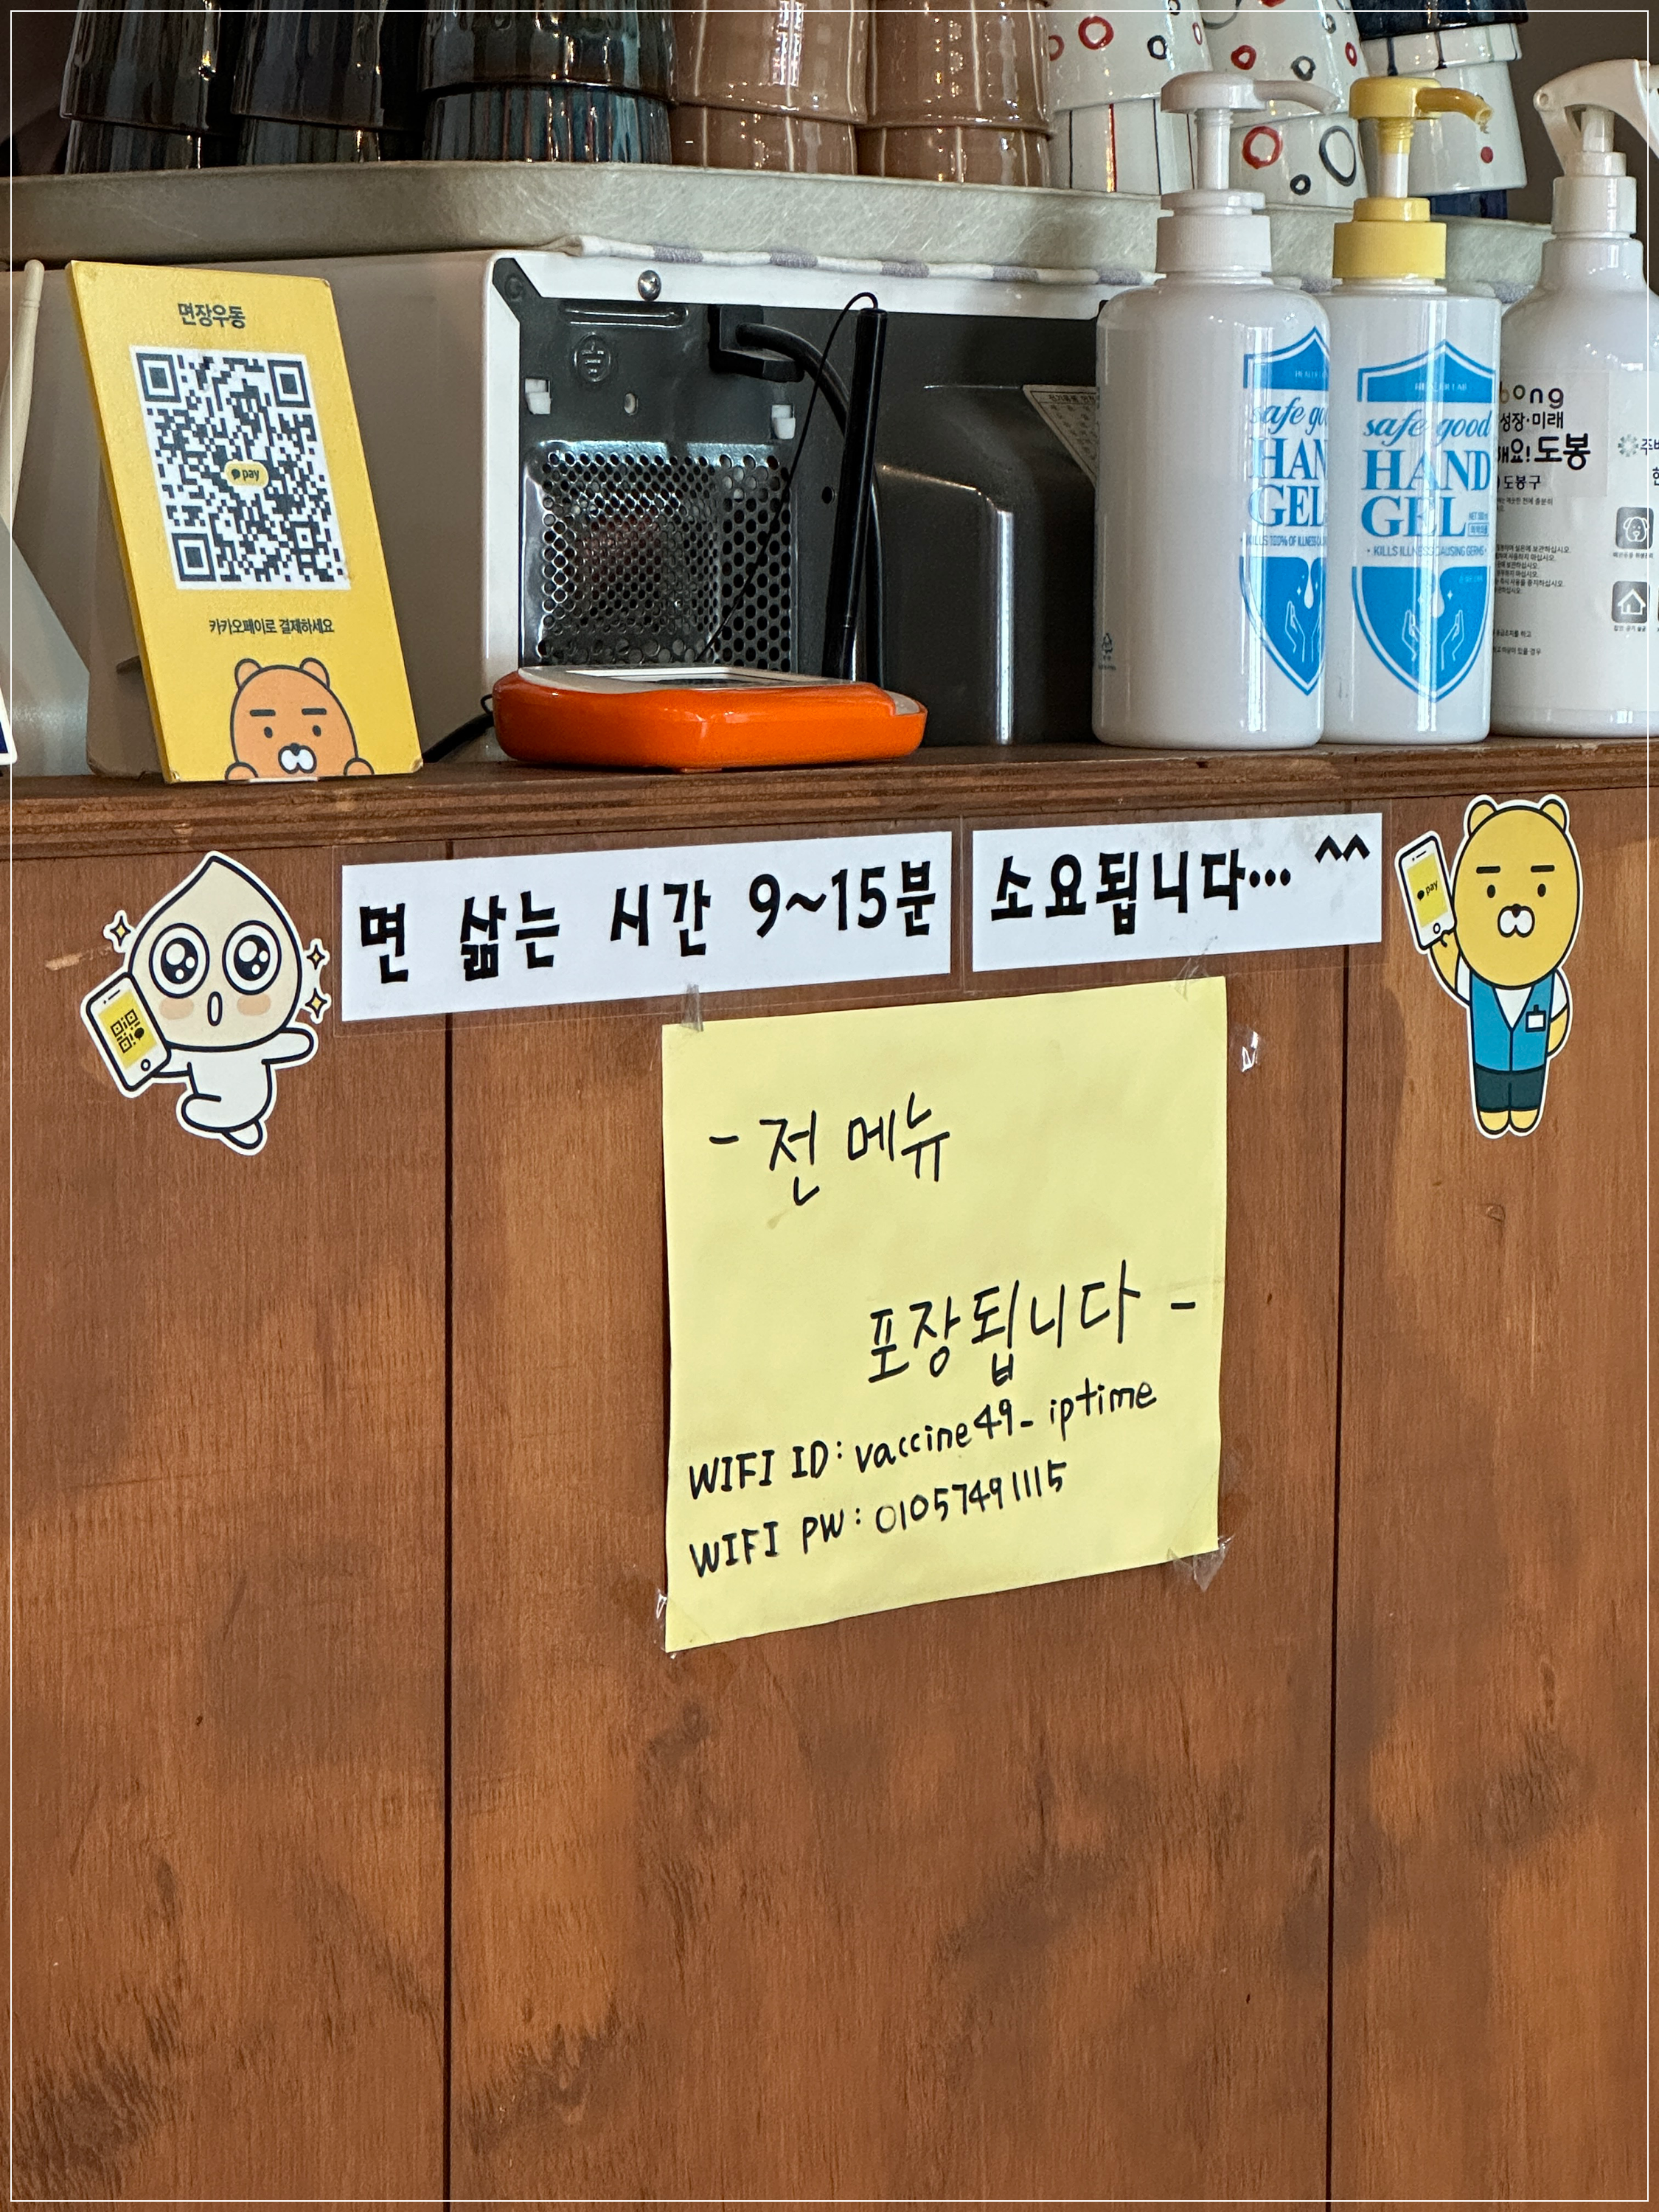 면장우동
pay
카카오페이로 결제하세요
safe go
HAN
GEL
safe good
HAND
GEL
KILLS ILLNESS CAUSING GERMS
bong
성장·미래
해요! 도봉
도봉구
면 삶는 시간 9~15분 소요됩니다... ^^
pay
- 전 메뉴
포장됩니다 -
WIFI ID: vaccine49_iptime
WIFI PW: 01057491115